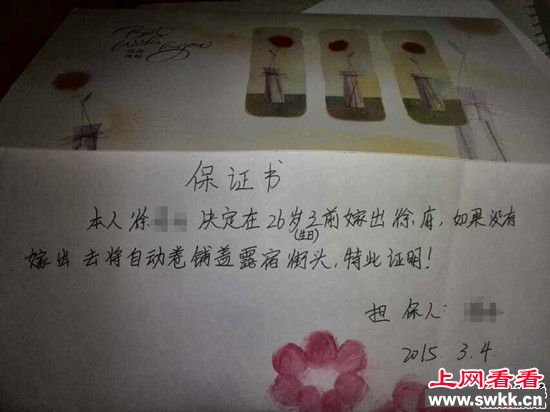 Best
Wishes
for you
保证书
本人徐 决定在26岁之前嫁出徐府,如果没有
(生日)
嫁出去将自动卷铺盖露宿街头,特此证明!
担保人:
2015.3.4.
上网看看
www.swkk.cn